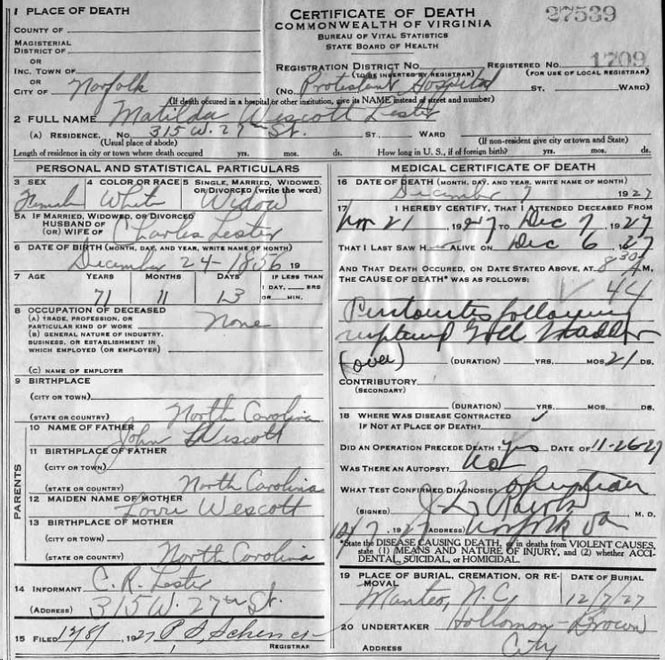 1 PLACE OF DEATH
COUNTY OF
MAGISTERIAL DISTRICT OF
OR
INC. TOWN OF
OR
CITY OF Norfolk
CERTIFICATE OF DEATH
COMMONWEALTH OF VIRGINIA
BUREAU OF VITAL STATISTICS
STATE BOARD OF HEALTH
27539
REGISTRATION DISTRICT NO. REGISTERED NO. 1709
(TO BE INSERTED BY REGISTRAR) (FOR USE OF LOCAL REGISTRAR)
(No. Protestant Hospital ST. WARD)
(If death occured in a hospital or other institution, give its NAME instead of street and number)
2 FULL NAME Matilda Wescott Lester
(A) RESIDENCE. No. 315 W. 27th St. ST. WARD
(Usual place of abode) (If non-resident give city or town and State)
Length of residence in city or town where death occured yrs. mos. ds. How long in U. S., if of foreign birth? yrs. mos. ds.
PERSONAL AND STATISTICAL PARTICULARS
3 SEX 4 COLOR OR RACE 5 SINGLE, MARRIED, WIDOWED, OR DIVORCED (write the word)
Female White Widow
5A IF MARRIED, WIDOWED, OR DIVORCED
HUSBAND OF
(OR) WIFE OF Charles Lester
6 DATE OF BIRTH (MONTH, DAY, AND YEAR, WRITE NAME OF MONTH)
December 24-1856 19
7 AGE YEARS MONTHS DAYS IF LESS THAN
1 DAY, HRS
OR MIN.
71 11 13
8 OCCUPATION OF DECEASED
(A) TRADE, PROFESSION, OR
PARTICULAR KIND OF WORK None
(B) GENERAL NATURE OF INDUSTRY,
BUSINESS, OR ESTABLISHMENT IN
WHICH EMPLOYED (OR EMPLOYER)
(C) NAME OF EMPLOYER
9 BIRTHPLACE
(CITY OR TOWN)
(STATE OR COUNTRY) North Carolina
PARENTS
10 NAME OF FATHER
John Wescott
11 BIRTHPLACE OF FATHER
(CITY OR TOWN)
(STATE OR COUNTRY) North Carolina
12 MAIDEN NAME OF MOTHER
Wescott
13 BIRTHPLACE OF MOTHER
(CITY OR TOWN)
(STATE OR COUNTRY) North Carolina
14 INFORMANT C. R. Lester
(ADDRESS) 315 W. 27th St.
15 FILED 12/8/ 1927 P. S. Schenck
REGISTRAR
MEDICAL CERTIFICATE OF DEATH
16 DATE OF DEATH (MONTH, DAY, AND YEAR, WRITE NAME OF MONTH)
December 7 1927
17 I HEREBY CERTIFY, THAT I ATTENDED DECEASED FROM
Nov 21 1927 TO Dec 7 1927
THAT I LAST SAW H ALIVE ON Dec 6 27
AND THAT DEATH OCCURED, ON DATE STATED ABOVE, AT 8 30 M.
THE CAUSE OF DEATH* WAS AS FOLLOWS:
44
Peritonitis following
ruptured Gall bladder
(over) (DURATION) YRS. MOS. 21 DS.
CONTRIBUTORY
(SECONDARY)
(DURATION) YRS. MOS. DS.
18 WHERE WAS DISEASE CONTRACTED
IF NOT AT PLACE OF DEATH?
DID AN OPERATION PRECEDE DEATH? Yes DATE OF 11-26-27
WAS THERE AN AUTOPSY? No
WHAT TEST CONFIRMED DIAGNOSIS? Operation
(SIGNED) J. L. M. D.
12/7 1927 (ADDRESS) Norfolk Va
*State the DISEASE CAUSING DEATH, or in deaths from VIOLENT CAUSES,
state (1) MEANS AND NATURE OF INJURY, and (2) whether ACCIDENTAL, SUICIDAL, or HOMICIDAL.
19 PLACE OF BURIAL, CREMATION, OR REMOVAL DATE OF BURIAL
Manteo, N.C. 12/7/27
20 UNDERTAKER Holloman-Brown
ADDRESS City